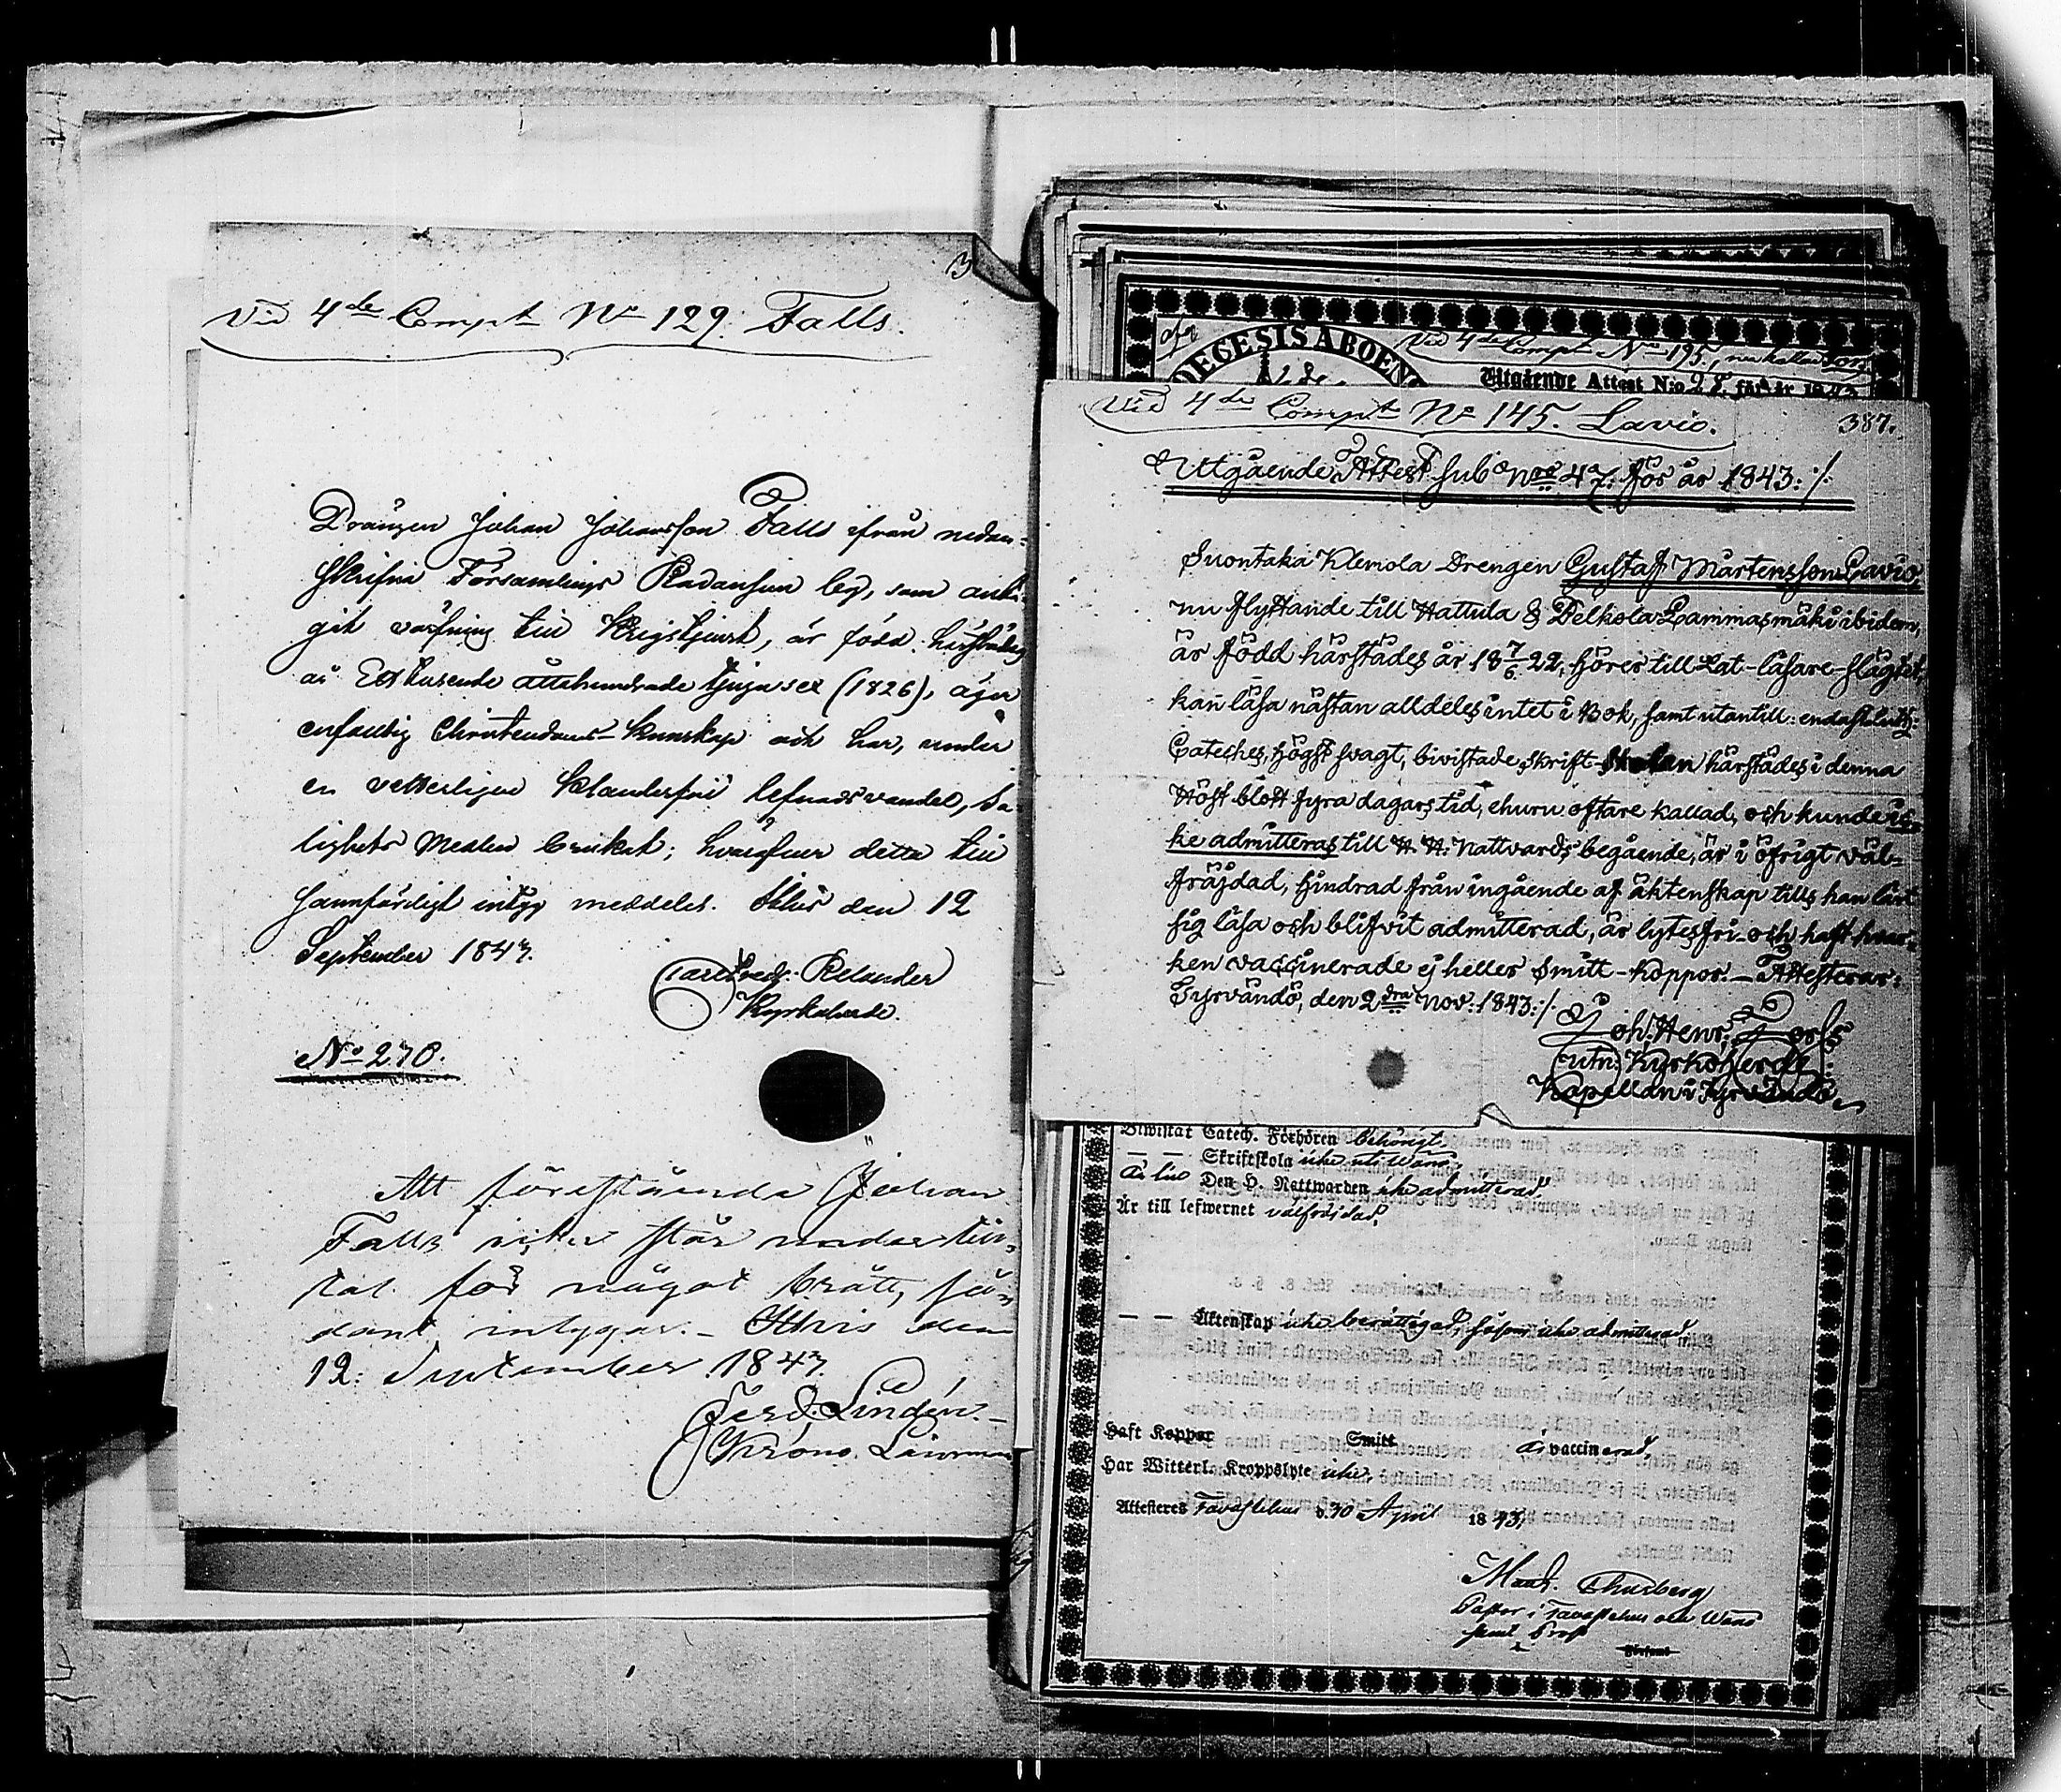 3
Vid 4de Compt No 129. Falls.
Drängen Johan Johansson Falls ifrån nedan-
skrifne Församlings Radansuu by, som anti-
git värfning till Krigstjenst, är född härstädes
år Ett tusende åttahundrade tjugu sex (1826), äger
enfaldig Christendoms-Kunskap och har, under
en vetterligen klanderfri lefnadsvandel, Sa-
lighets Medlen brukat; hvaröfver detta till
sannfärdigt intyg meddelas. den 12
September 1847.
Carl Fredr. Relander
Kyrkoherde.
No 270.
Att förestående Johan
Falls icke står under till-
tal för något brott, så-
dant intygar. – den
12. September 1847.
Ferd. Lindén. –
Krono Länsman
DIECESIS ABOENS
Vid 4de Compt No 195, nu kallad
Utgående Attest N:o 28. för år 1843
Vid 4de Compt No 145. Lavio.
387.
Utgående Attest sub Nro 47. för år 1843:/.
Suontaka Klemola Drengen Gustaf Mårtensson Lavio,
nu flyttande till Hattula & Pelkola Lammasmäki ibidem,
är född härstädes år 18 7/6 22, hörer till Lat-läsare-slägtet,
kan läsa nästan alldeles intet i Bok, samt utantill: endast
Cateches, högst svagt, bivistade skrift-skolan härstädes i denna
Höst blott fyra dagars tid, ehuru oftare kallad, och kunde ic-
ke admitteras till H. H. Nattvards begående, är i öfrigt väl-
fräjdad, hindrad från ingående af äktenskap tills han lärt
sig läsa och blifvit admitterad, är lytesfri och haft hvar-
ken vaccinerade ej heller Smitt-Koppor. – Attesterar:
Tyrvändö, den 2dra Nov: 1843:/.
Joh: Henr: Fors
utn: Kyrkoherde:
Kapellan i Tyrvändö.
Biwistat Catech. Förhören behörigt.
— — Skriftskola icke uti Wånå.
Den H. Nattwarden icke admitterad.
Är till lefwernet välfrejdad.
— — Äktenskap icke berättigad, såsom icke admitterad.
Haft Koppor Smitt är vaccinerad.
Har Witterl. Kroppslyte icke.
Attesteres Tavastehus d. 30 April 1843.
Thurberg
Pastor i Tavastehus och Wånå
samt Prost